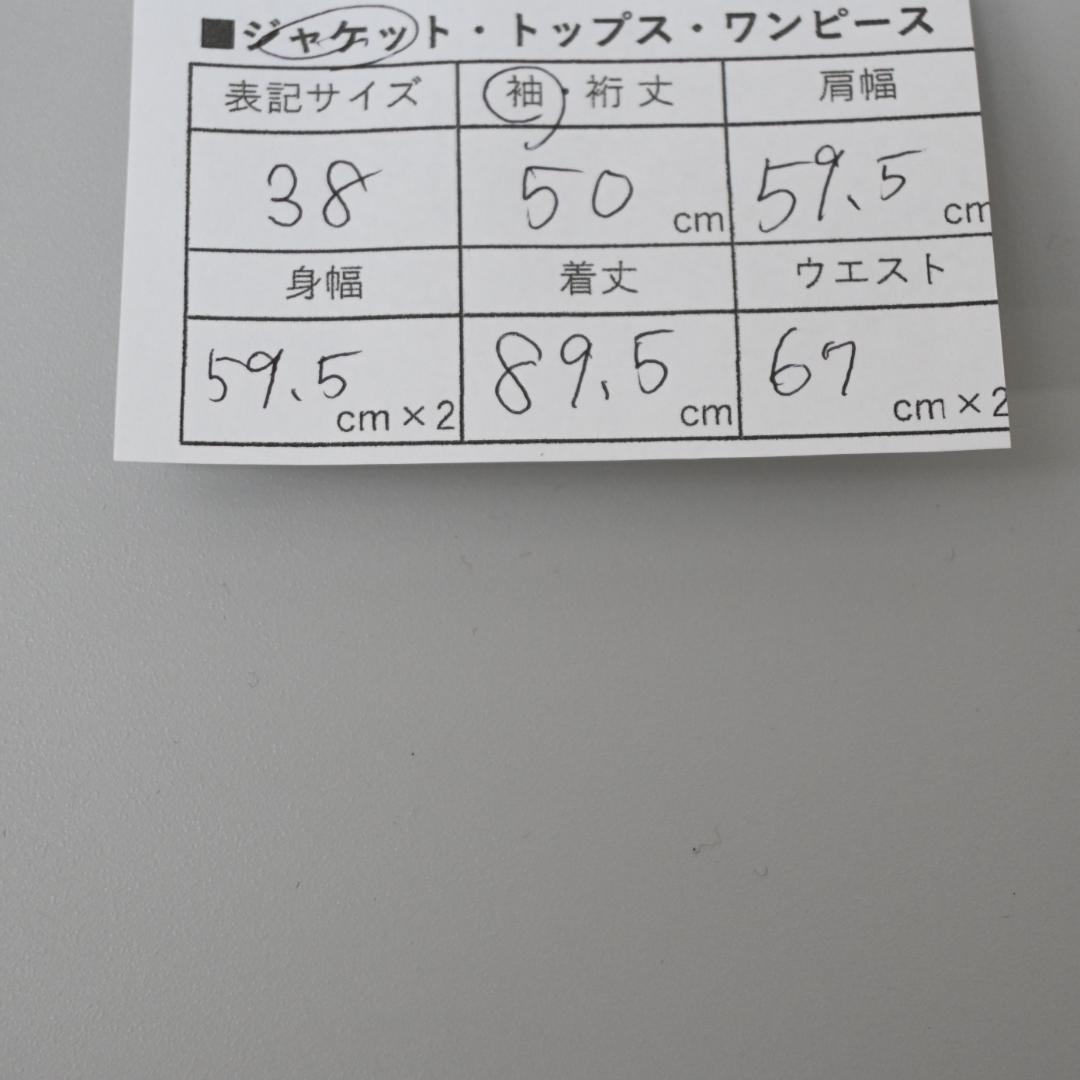 ■ジャケット・トップス・ワンピース
表記サイズ 袖・裄丈 肩幅
38 50 cm 59.5 cm
身幅 着丈 ウエスト
59.5 cm×2 89.5 cm 67 cm×2